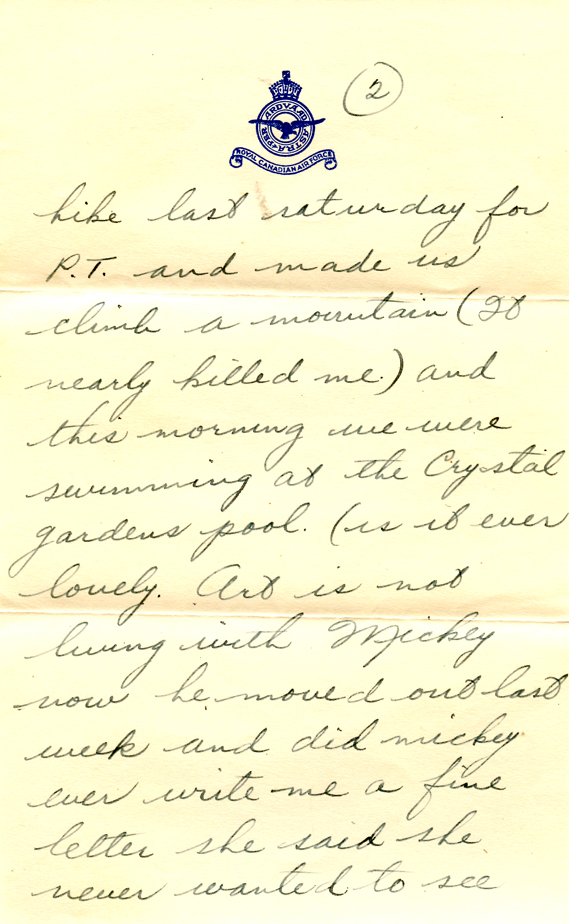 2
PER ARDVA AD ASTRA
ROYAL CANADIAN AIR FORCE
hike last saturday for
P.T. and made us
climb a mountain (It
nearly killed me.) and
this morning we were
swimming at the Crystal
gardens pool. (is it ever
lovely. Art is not
living with Mickey
now he moved out last
week and did mickey
ever write me a fine
letter she said she
never wanted to see